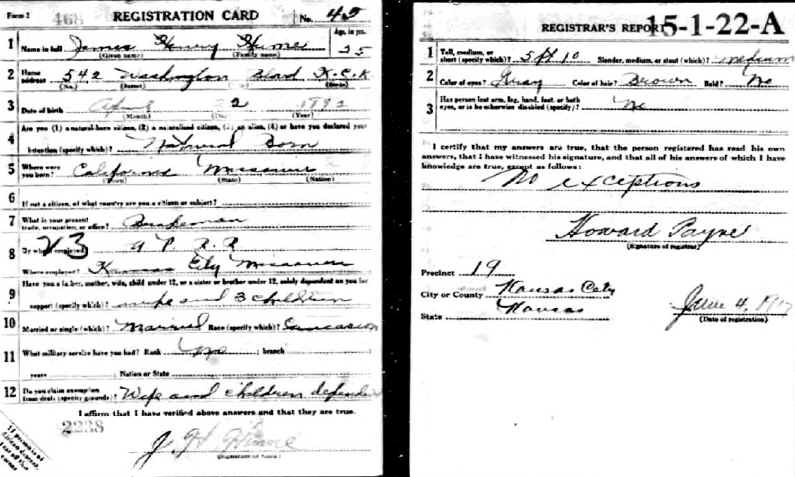 Form 1 468 REGISTRATION CARD No. 45
1 Name in full James Henry Age, in yrs. 25
(Given name) (Family name)
2 Home address 542 Washington Blvd K.C.K
(No.) (Street) (City) (State)
3 Date of birth April 2 1892
(Month) (Day) (Year)
4 Are you (1) a natural-born citizen, (2) a naturalized citizen, (3) an alien, (4) or have you declared your
intention (specify which)? Natural Born
5 Where were you born? California Missouri
(Town) (State) (Nation)
6 If not a citizen, of what country are you a citizen or subject?
7 What is your present trade, occupation, or office? Brakeman
8 By whom employed? 23 P. R. R
Where employed? Kansas City Missouri
9 Have you a father, mother, wife, child under 12, or a sister or brother under 12, solely dependent on you for
support (specify which)? wife and 3 children
10 Married or single (which)? Married Race (specify which)? Caucasian
11 What military service have you had? Rank No branch
years Nation or State
12 Do you claim exemption from draft (specify grounds)? Wife and children
I affirm that I have verified above answers and that they are true.
2238
J. H.
(Signature or mark)
REGISTRAR'S REPORT 15-1-22-A
1 Tall, medium, or short (specify which)? 5 ft 10 Slender, medium, or stout (which)? medium
2 Color of eyes? Gray Color of hair? Brown Bald? No
3 Has person lost arm, leg, hand, foot, or both
eyes, or is he otherwise disabled (specify)? No
I certify that my answers are true, that the person registered has read his own
answers, that I have witnessed his signature, and that all of his answers of which I have
knowledge are true, except as follows:
No exceptions
Howard Payne
(Signature of registrar)
Precinct 19
City or County Kansas City
State Kansas
June 4, 1917
(Date of registration)